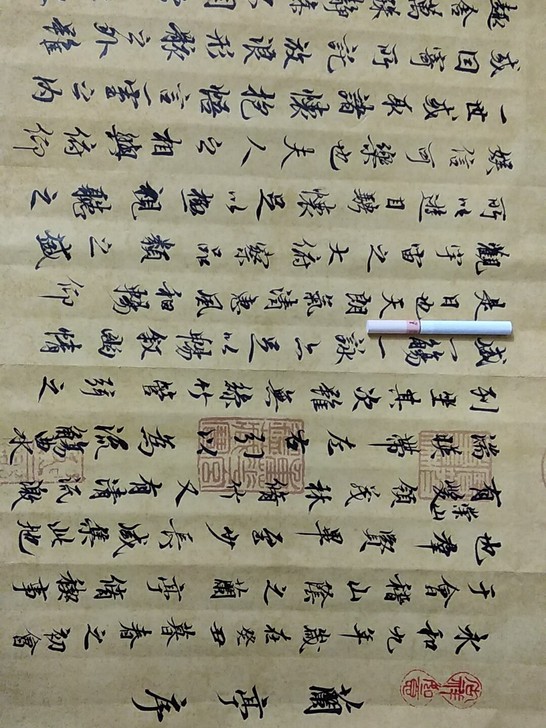 蘭亭序
永和九年歲在癸丑暮春之初會
于會稽山陰之蘭亭脩稧事
也群賢畢至少長咸集此地
有崇山峻領茂林脩竹又有清流激
湍暎帶左右引以為流觴曲水
列坐其次雖無絲竹管弦之
盛一觴一詠亦足以暢敘幽情
是日也天朗氣清惠風和暢仰
觀宇宙之大俯察品類之盛
所以遊目騁懷足以極視聽之
娛信可樂也夫人之相與俯仰
一世或取諸懷抱悟言一室之內
或因寄所託放浪形骸之外雖
趣舍萬殊靜